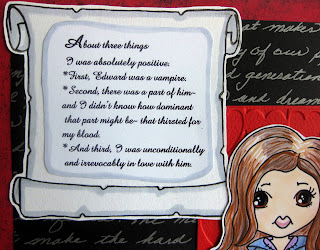 About three things
I was absolutely positive:
*First, Edward was a vampire.
*Second, there was a part of him~
and I didn't know how dominant
that part might be~ that thirsted for
my blood.
*And third, I was unconditionally
and irrevocably in love with him.
that makes
of our p
d generation
and dream
make the hard